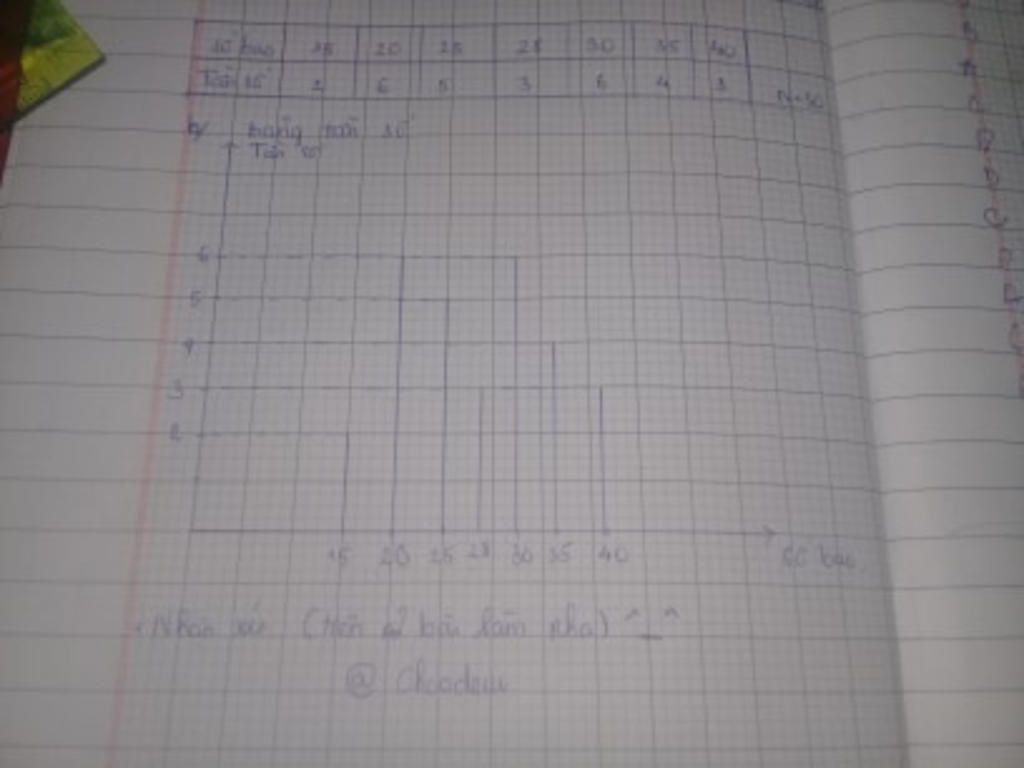 Số bao 15 20 25 28 30 35 40
Tần số 2 6 5 3 6 4 3 N=30
b/ bảng tần số
Tần số
6
5
4
3
2
15 20 25 28 30 35 40 Số bao
Nhận xét (trên cơ bài làm nha) ^_^
@
A
C
D
D
C
D
D
C